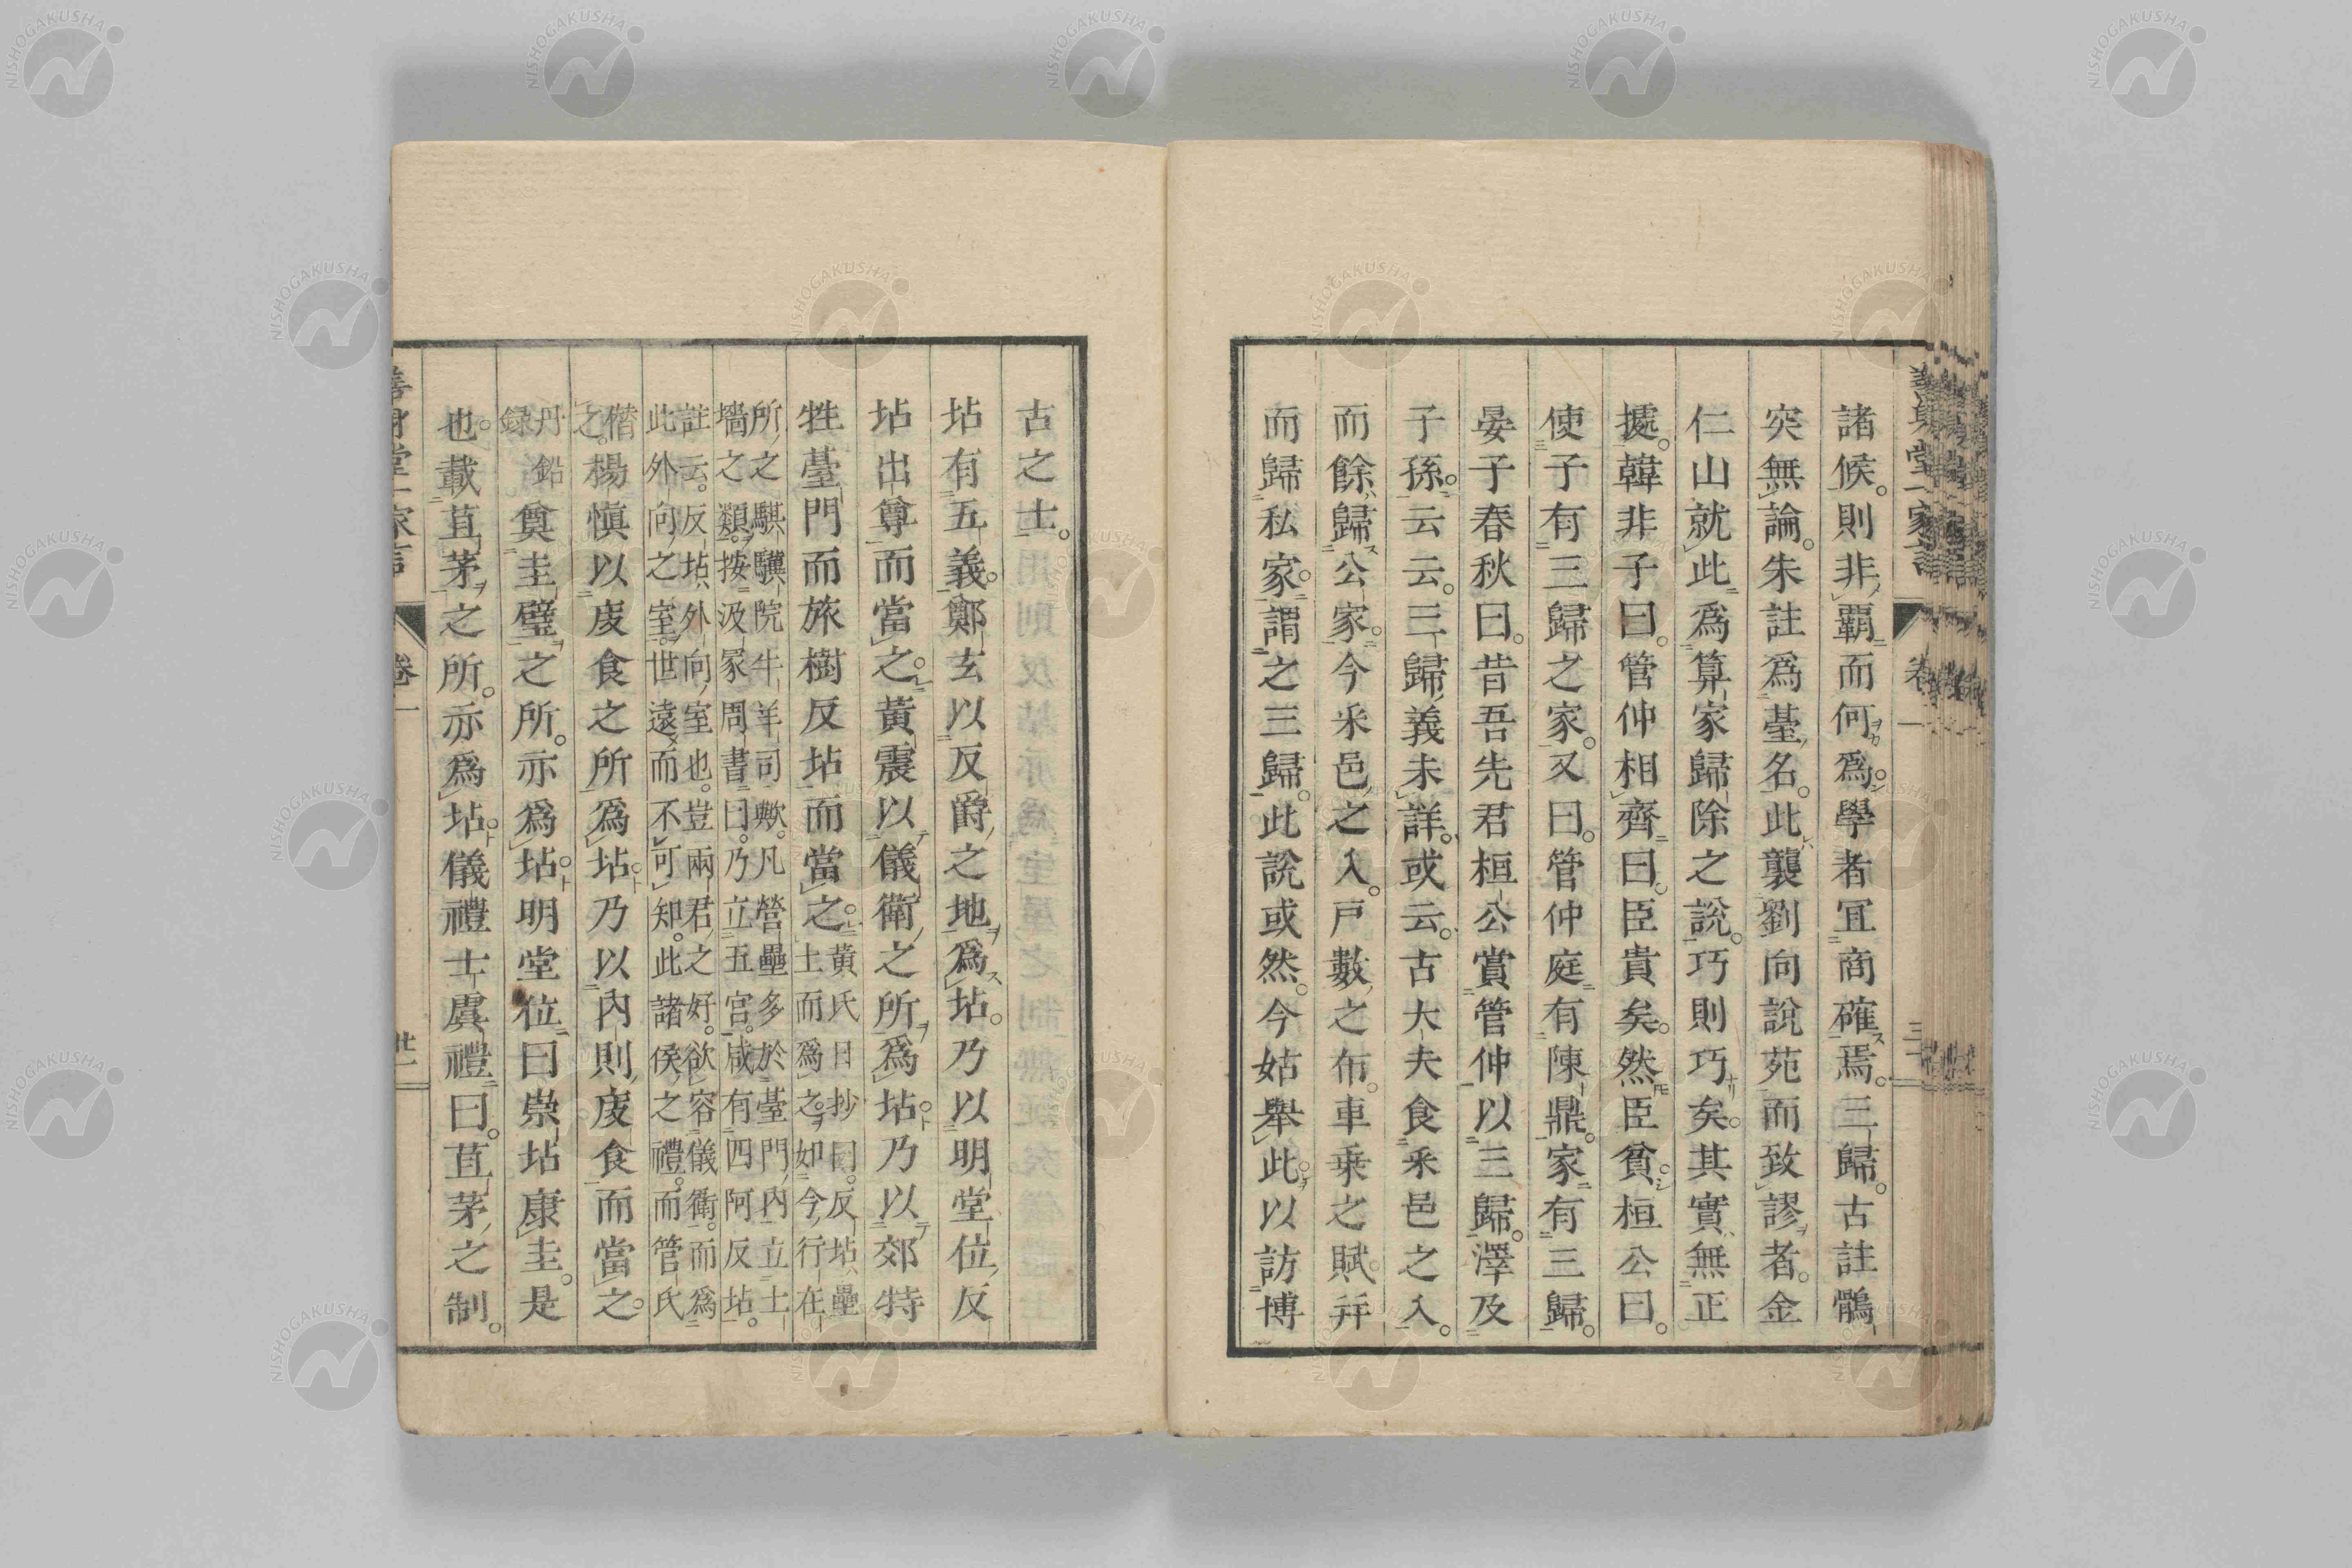 諸侯。則非覇而何爲。學者宜商確焉。三歸。古註鶻
突無論。朱註爲臺名。此襲劉向說苑而致謬者。金
仁山就此爲算家歸除之說。巧則巧矣。其實無正
據。韓非子曰。管仲相齊曰。臣貴矣。然臣貧。桓公曰。
使子有三歸之家。又曰。管仲庭有陳鼎。家有三歸。
晏子春秋曰。昔吾先君桓公賞管仲以三歸。澤及
子孫。云云。三歸義未詳。或云。古大夫食釆邑之入。
而餘歸公家。今釆邑之入。戸數之布。車乗之賦。幷
而歸私家。謂之三歸。此說或然。今姑舉此以訪博
古之士。
坫有五義。鄭玄以反爵之地爲坫。乃以明堂位反
坫出尊而當之。黃震以儀衛之所爲坫。乃以郊特
牲臺門而旅樹反坫而當之。黃氏日抄曰。反坫壘
土而爲之。如今行在
所之騏驥院牛羊司歟。凡營壘多於臺門內立土
墻之類。按汲冢周書曰。乃立五宮。咸有四阿反坫。
註云。反坫外向室也。豈兩君之好。欲容儀衛。而爲
此外向之室。世遠而不可知。此諸侯之禮。而管氏
僭
之。楊愼以庋食之所爲坫。乃以內則庋食而當之。
丹鉛
録奠圭璧之所。亦爲坫。明堂位曰崇坫康圭。是
也。載苴茅之所。亦爲坫。儀禮士虞禮曰。苴茅之制。
卷一
三十
卷一
廿一
NISHOGAKUSHA